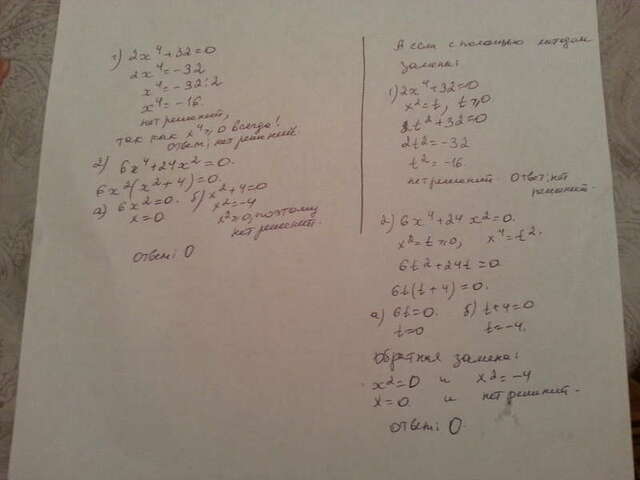 1) 2x⁴+32=0
2x⁴=-32
x⁴=-32:2
x⁴=-16.
нет решений,
так как x⁴≥0 всегда!
ответ: нет решений.
2) 6x⁴+24x²=0.
6x²(x²+4)=0.
а) 6x2=0. б) x²+4=0
x=0. x²=-4
x²≥0, поэтому
нет решений.
ответ: 0
А если с помощью методом
замены:
1) 2x⁴+32=0
x²=t, t≥0
2t²+32=0
2t²=-32
t²=-16.
нет решений. Ответ: нет
решений.
2) 6x⁴+24x²=0.
x²=t≥0, x⁴=t².
6t²+24t=0
6t(t+4)=0.
а) 6t=0. б) t+4=0
t=0 t=-4.
Обратная замена:
x²=0 и x2=-4
x=0. и нет решений.
ответ: 0.